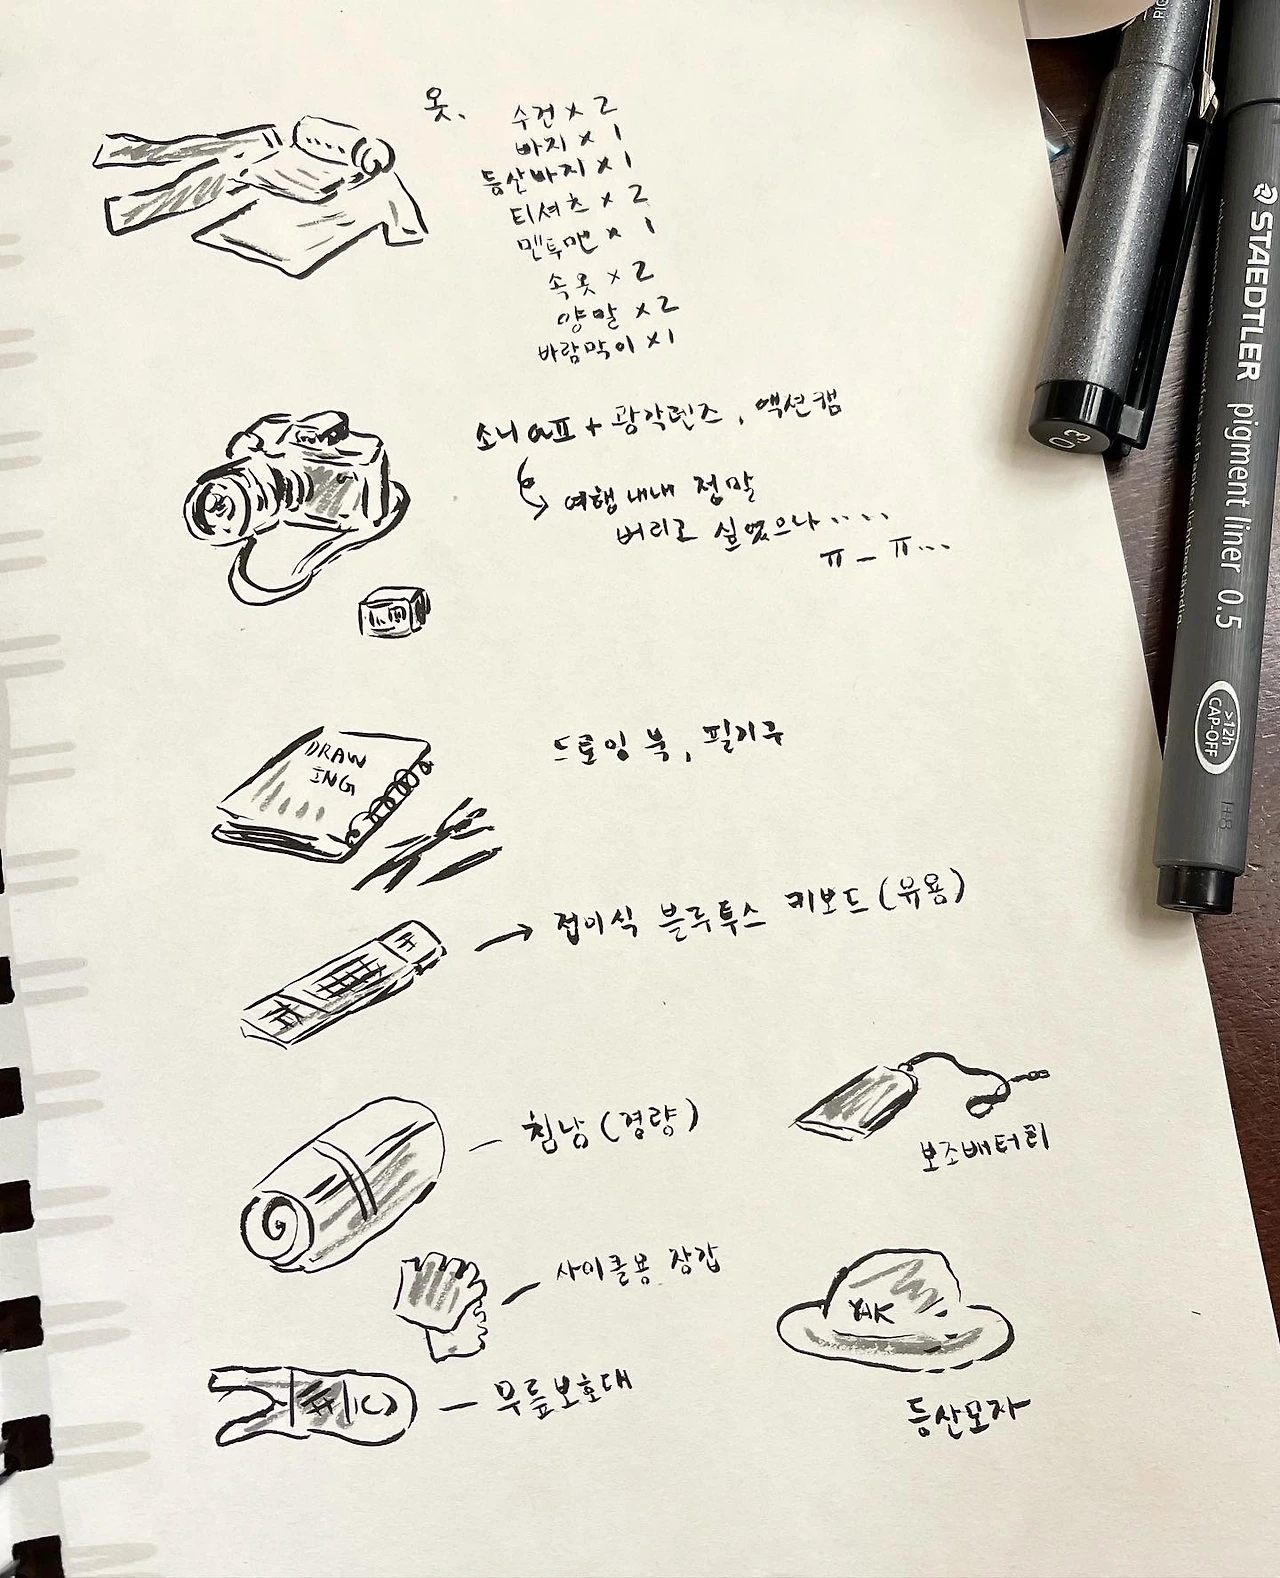 옷.
수건 x 2
바지 x 1
등산바지 x1
티셔츠 x 2
맨투맨 x 1
속옷 x 2
양말 x2
바람막이 x1
소니 a7II + 광각렌즈, 액션캠
여행내내 정말
버리고 싶었으나....
ㅠ_ㅠ...
DRAW
ING
드로잉 북, 필기구
접이식 블루투스 키보드(유용)
침낭(경량)
보조배터리
사이클용 장갑
YAK
무릎보호대
등산모자
STAEDTLER pigment liner 0.5
>12h
CAP-OFF